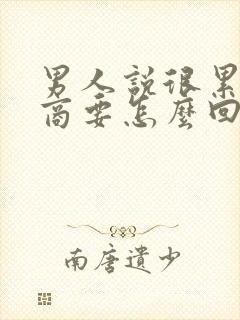 男人說很累
商要怎麼回
南唐遺少